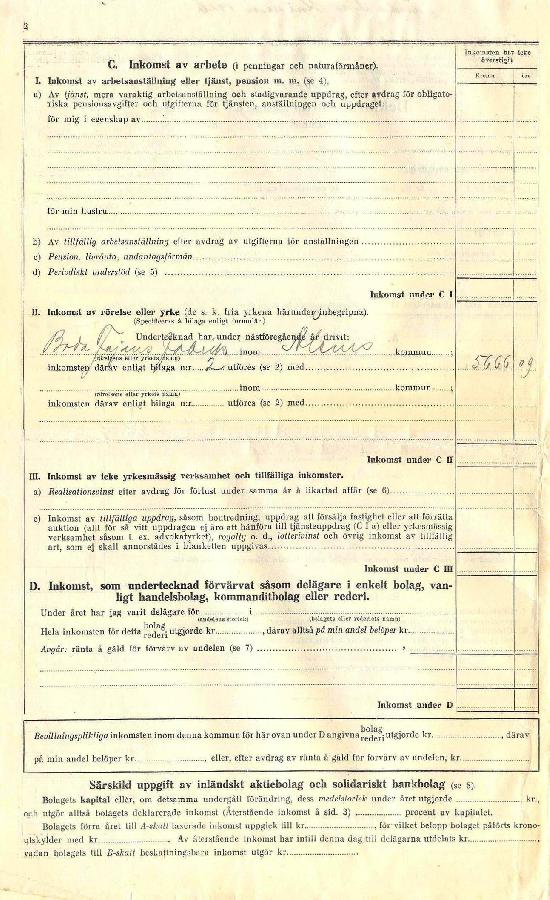 2
C. Inkomst av arbete (i penningar och naturaförmåner).
Inkomsten bör icke
överstigit
Kronor
öre
I. Inkomst av arbetsanställning eller tjänst, pension m. m. (se 4).
a) Av tjänst, mera varaktig arbetsanställning och stadigvarande uppdrag, efter avdrag för obligato-
riska pensionsavgifter och utgifterna för tjänsten, anställningen och uppdraget:
för mig i egenskap av
för min hustru
b) Av tillfällig arbetsanställning efter avdrag av utgifterna för anställningen
c) Pension, livränta, undantagsförmån
d) Periodiskt understöd (se 5)
Inkomst under C I
II. Inkomst av rörelse eller yrke (de s. k. fria yrkena härunder inbegripna).
(Specificeras å bilaga enligt formulär.)
Undertecknad har under nästföregående år drivit:
Boda inom kommun ;
(rörelsens eller yrkets namn)
inkomsten därav enligt bilaga n:r 2 utföres (se 2) med 5666 09
inom kommun ;
(rörelsens eller yrkets namn)
inkomsten därav enligt bilaga n:r utföres (se 2) med
Inkomst under C II
III. Inkomst av icke yrkesmässig verksamhet och tillfälliga inkomster.
a) Realisationsvinst efter avdrag för förlust under samma år å likartad affär (se 6)
c) Inkomst av tillfälliga uppdrag, såsom boutredning, uppdrag att försälja fastighet eller att förrätta
auktion (allt för så vitt uppdragen ej äro att hänföra till tjänsteuppdrag (C I a) eller yrkesmässig
verksamhet såsom t. ex. advokatyrket), royalty o. d., lotterivinst och övrig inkomst av tillfällig
art, som ej skall annorstädes i blanketten uppgivas
Inkomst under C III
D. Inkomst, som undertecknad förvärvat såsom delägare i enkelt bolag, van-
ligt handelsbolag, kommanditbolag eller rederi.
Under året har jag varit delägare för i
(andelens storlek) (bolagets eller rederiets namn)
Hela inkomsten för detta bolag rederi utgjorde kr. , därav alltså på min andel belöper kr.
Avgår: ränta å gäld för förvärv av andelen (se 7) »
Inkomst under D
Bevillningspliktiga inkomsten inom denna kommun för här ovan under D angivna bolag rederi utgjorde kr. , därav
på min andel belöper kr. , eller, efter avdrag av ränta å gäld för förvärv av andelen, kr.
Särskild uppgift av inländskt aktiebolag och solidariskt bankbolag (se 8).
Bolagets kapital eller, om detsamma undergått förändring, dess medelstorlek under året utgjorde kr.,
och utgör alltså bolagets deklarerade inkomst (Återstående inkomst å sid. 3) procent av kapitalet.
Bolagets förra året till A-skatt taxerade inkomst uppgick till kr. , för vilket belopp bolaget påförts krono-
utskylder med kr. Av återstående inkomst har intill denna dag till delägarna utdelats kr. ,
vadan bolagets till B-skatt beskattningsbara inkomst utgör kr.